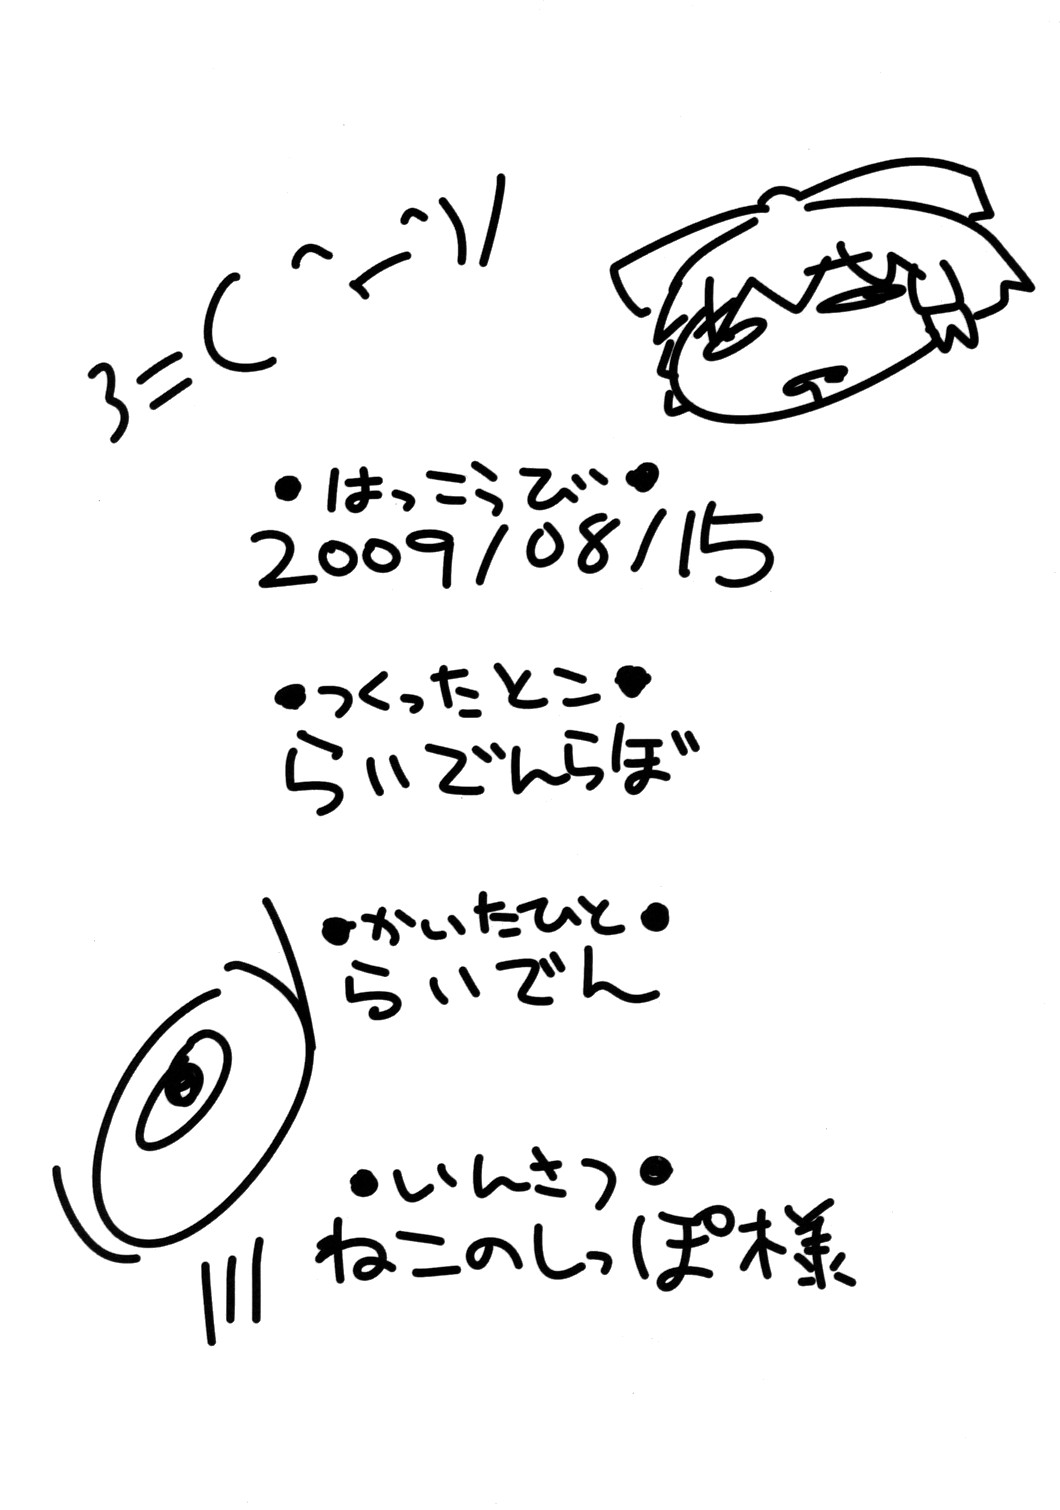 3=(^-^)/
●はっこうび●
2009/08/15
●つくったとこ●
らいでんらぼ
●かいたひと●
らいでん
●いんさつ●
ねこのしっぽ様